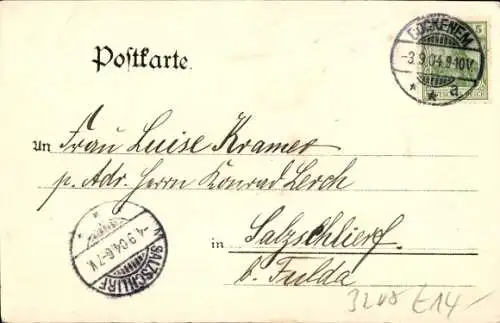 BOCKENEM
-3.9.04.9-10V.
* * a
5
Postkarte.
An Frau Luise Kramer
p. Adr. Herrn Konrad Lerch
in Salzschlierf
b. Fulda
SALZSCHLIRF
-4.9.04.6-7V.
3208 £14-